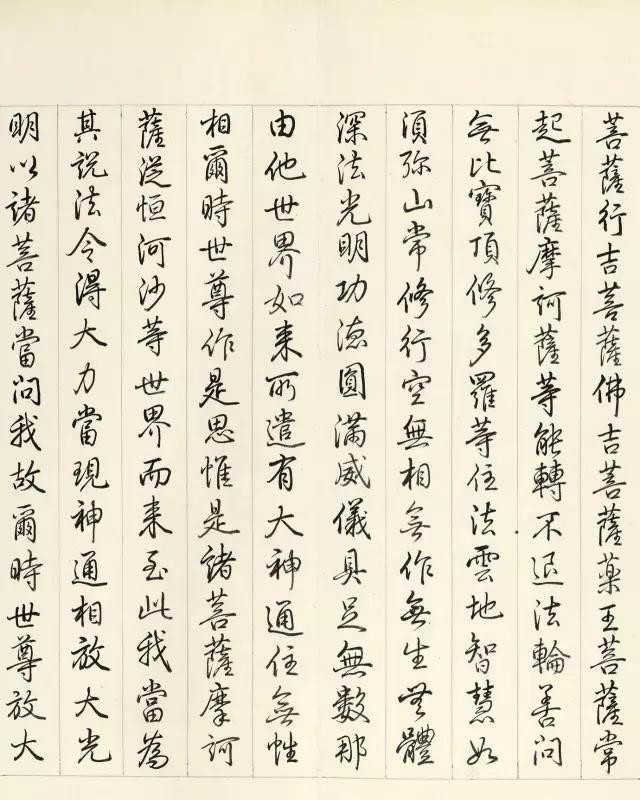 菩薩行吉菩薩佛吉菩薩藥王菩薩常
起菩薩摩訶薩等能轉不退法輪善問
無比寶頂修多羅等住法雲地智慧如
須弥山常修行空無相無作無生無體
深法光明功德圓滿威儀具足無數那
由他世界如来所遣有大神通住無性
相爾時世尊作是思惟是諸菩薩摩訶
薩從恒河沙等世界而来至此我當為
其説法令得大力當現神通相放大光
明以諸菩薩當問我故爾時世尊放大